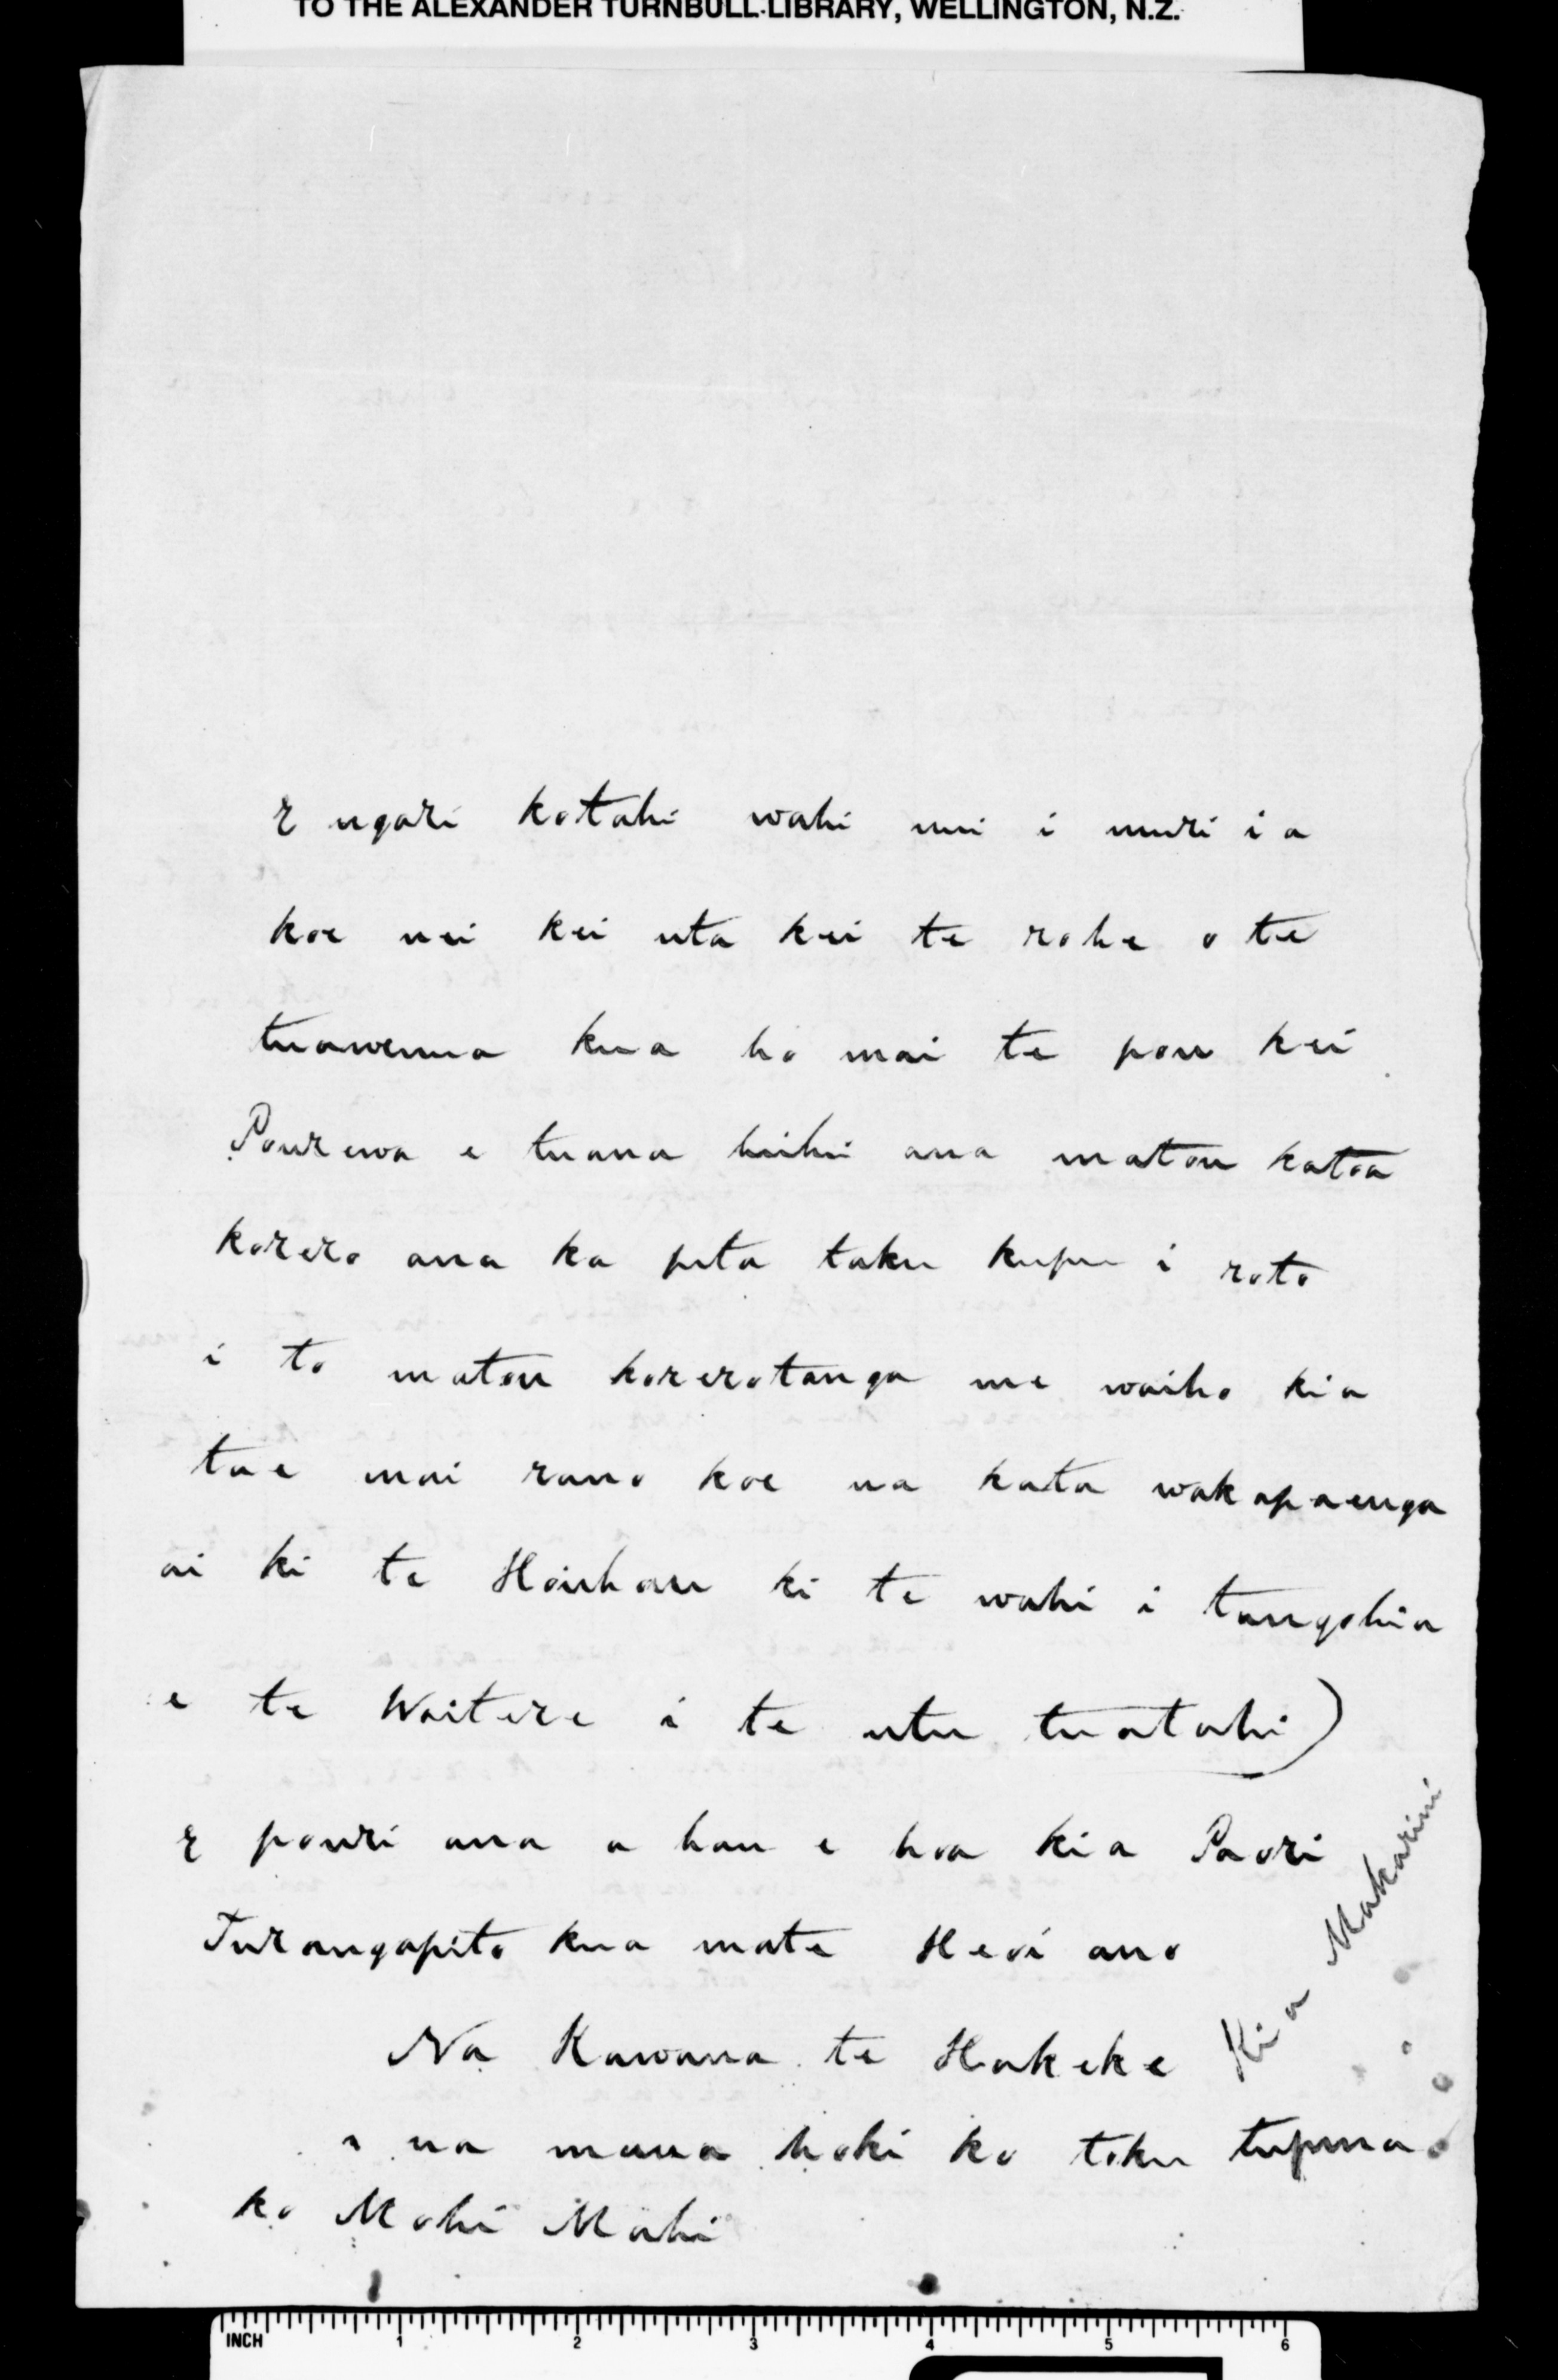 TO THE ALEXANDER TURNBULL LIBRARY, WELLINGTON, N.Z.
E ngari kotahi wahi nui i muri i a
koe nei kei uta kei te rohe o te
tuawenua kua ho mai te pou kei
Pourewa e tuana huihui ana matou katoa
korero ana ka puta taku kupu i roto
i to matou korerotanga me waiho kia
tae mai rano koe na kata wakapaenga
ai ki te Hauhau ki te wahi i tangohia
e te Waitere i te utu tuatahi)
E pouri ana a hau e hoa kia Paori
Turangapito kua mate Heoi ano
Na Kawana te Hakeke
Kia Makarini
na mana hoki ko toku tupuna
ko Mohi Mahi
INCH 1 2 3 4 5 6